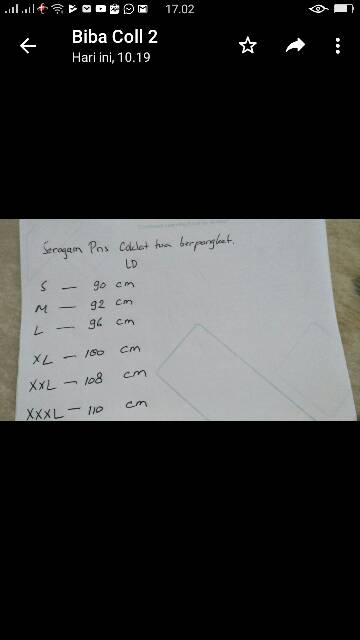 17.02
Biba Coll 2
Hari ini, 10.19
Seragam Pns Coklat tua berpangkat.
LD
S — 90 cm
M — 92 cm
L — 96 cm
XL — 100 cm
XXL — 108 cm
XXXL — 110 cm